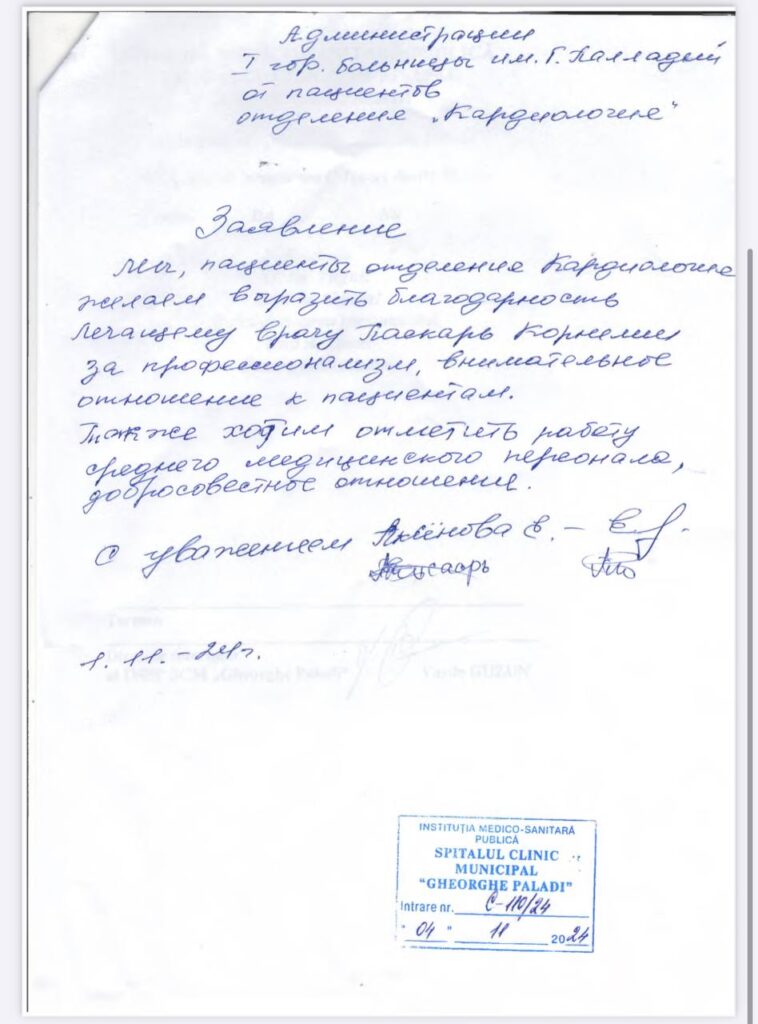 Администрации
I гор. больницы им. Г. Палладий
от пациентов
отделения „Кардиология"
Заявление
Мы, пациенты отделение Кардиологие
желаем выразить благодарность
лечащему врачу Паскарь Корнелии
за профессионализм, внимательное
отношение к пациентам.
Также хотим отметить работу
среднего медицинского персонала,
добросовестное отношения.
С уважением Аксёнова Е. –
1. 11. – 24г.
INSTITUȚIA MEDICO-SANITARĂ
PUBLICĂ
SPITALUL CLINIC
MUNICIPAL
"GHEORGHE PALADI"
Intrare nr. C-110/24
" 04 " 11 2024